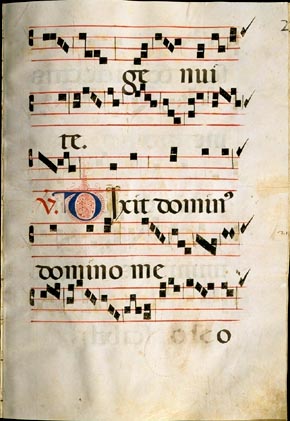 ge nui
te.
V. Dixit dominꝰ
domino me
o